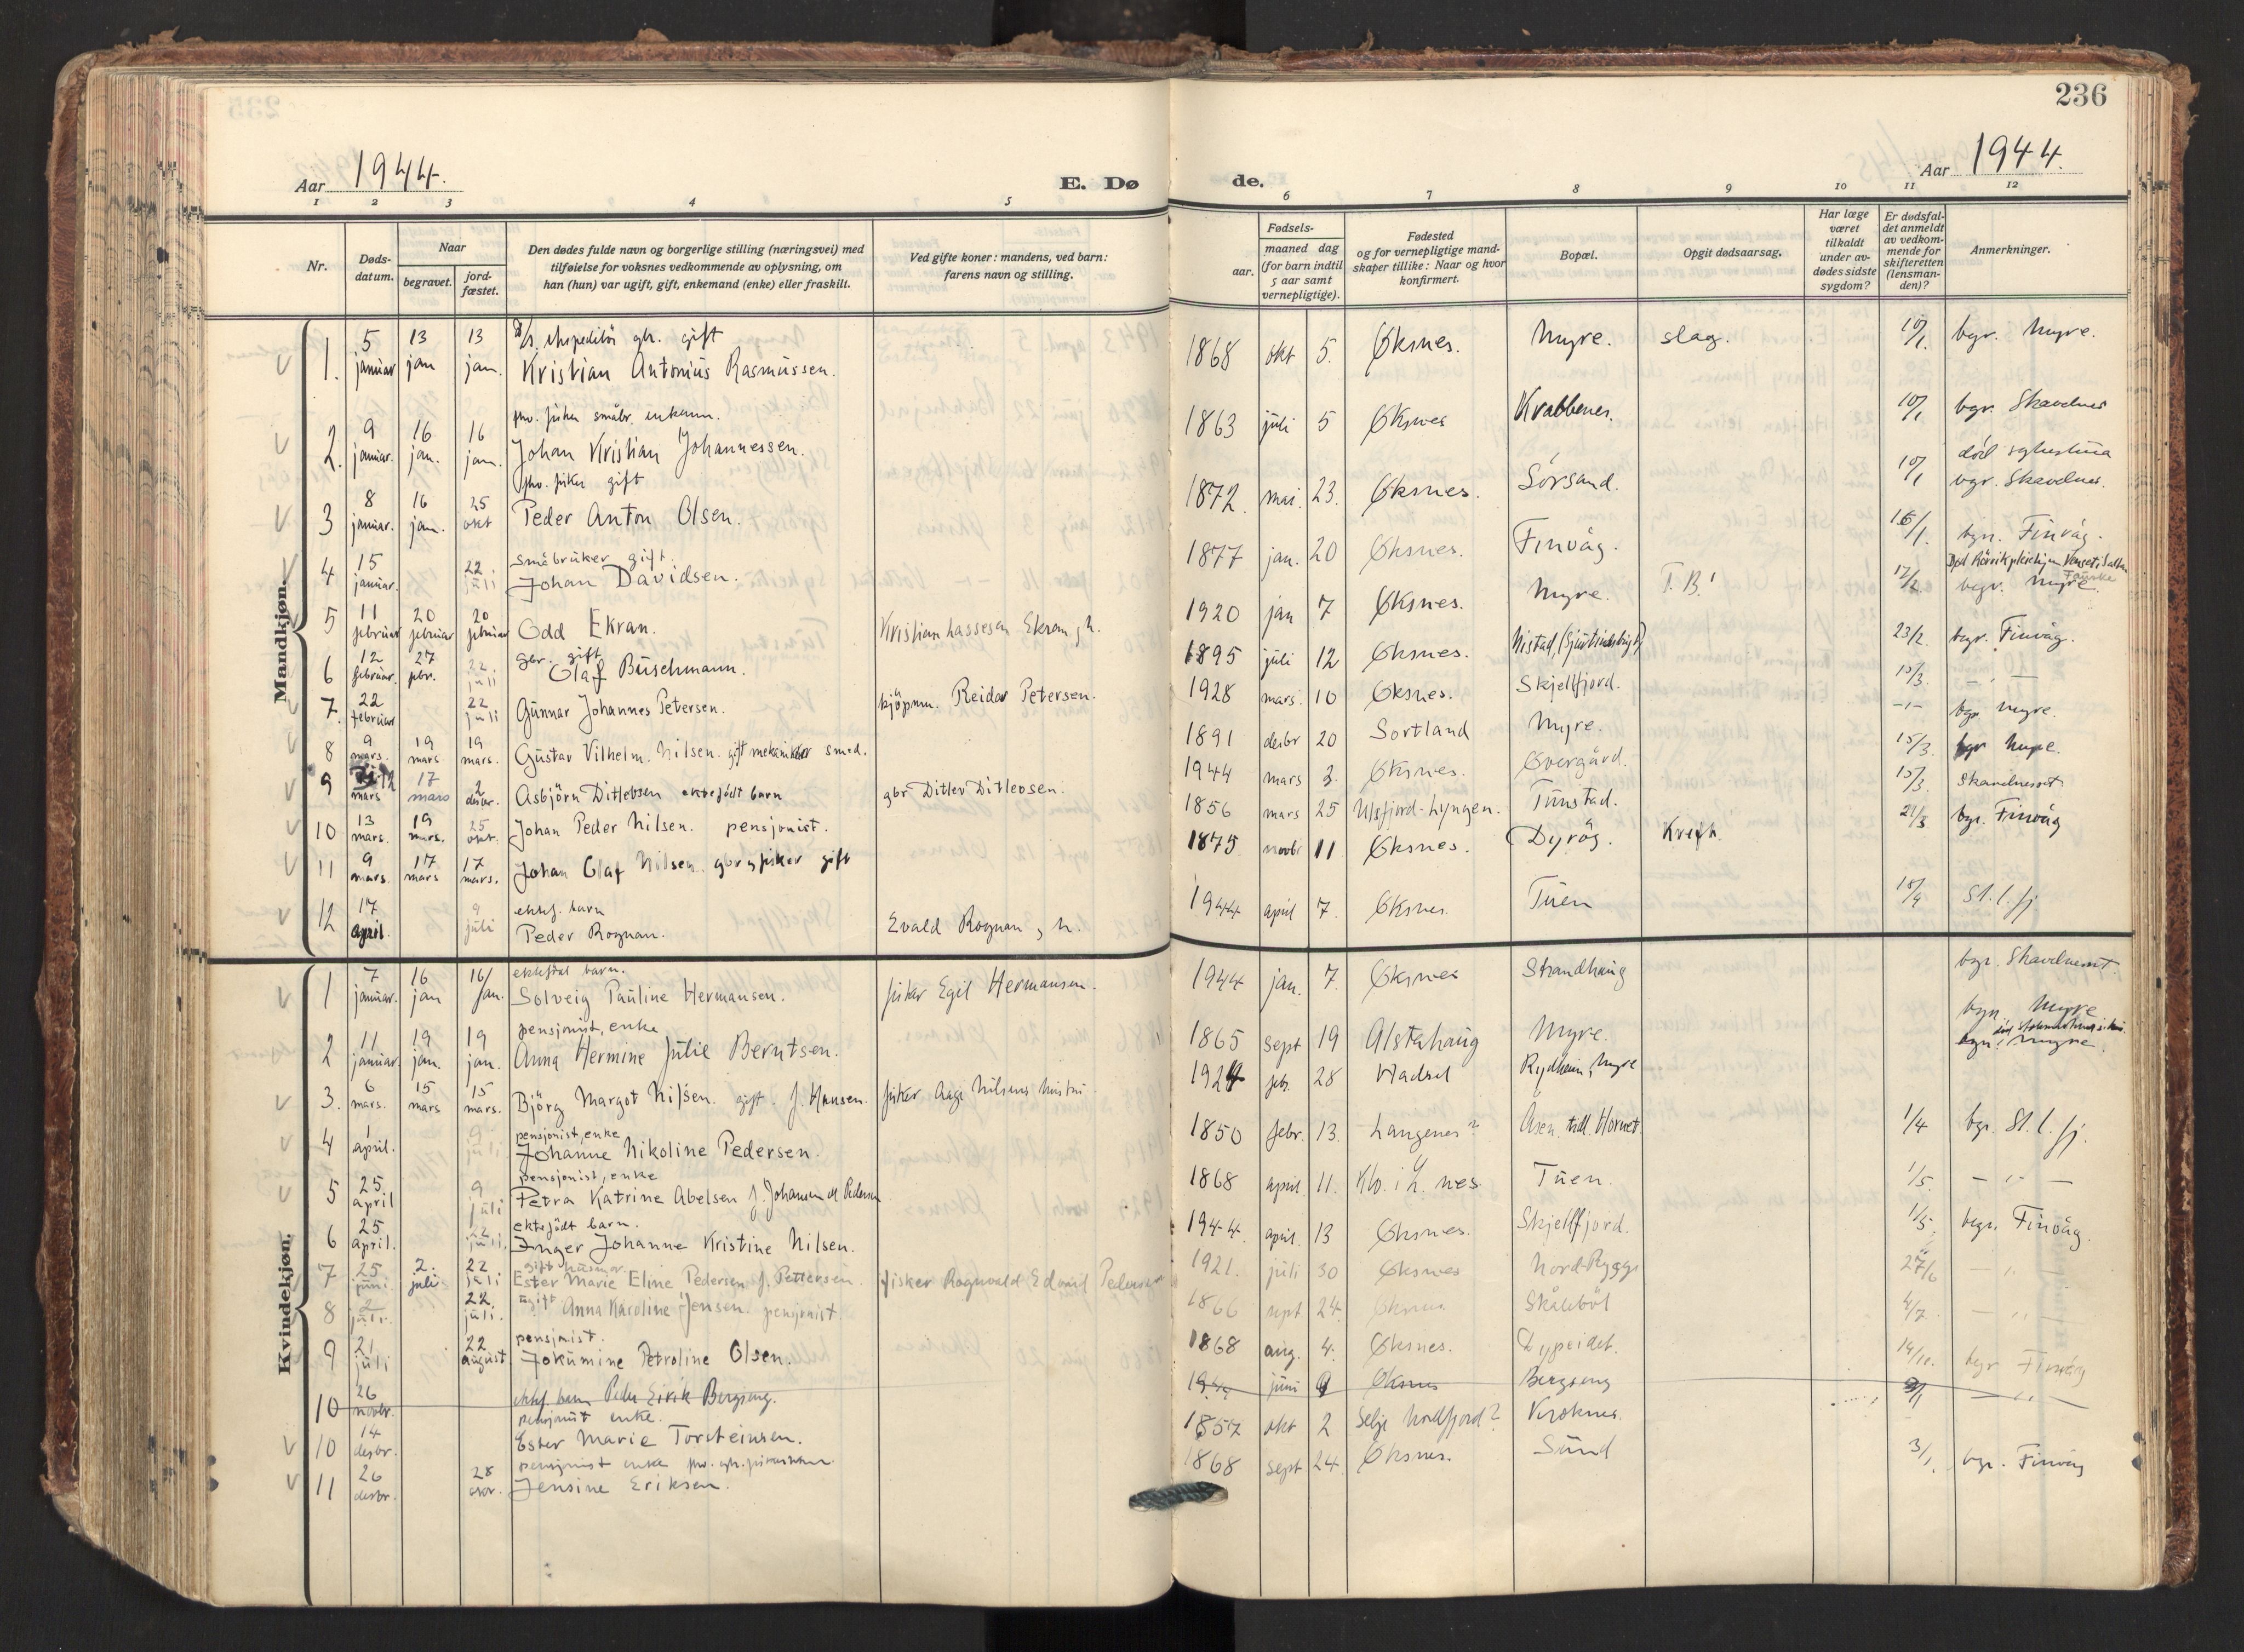 236
Aar 1944.
E. Dø
de.
Aar 1944.
1 2 3 4 5
6 7 8 9 10 11 12
Nr.
Døds-
datum.
Naar
begravet.
jord-
fæstet.
Den dødes fulde navn og borgerlige stilling (næringsvei) med
tilføielse for voksnes vedkommende av oplysning, om
han (hun) var ugift, gift, enkemand (enke) eller fraskilt.
Ved gifte koner: mandens, ved barn:
farens navn og stilling.
Fødsels-
aar.
maaned dag
(for barn indtil
5 aar samt
vernepligtige).
Fødested
og for vernepligtige mand-
skaper tillike: Naar og hvor
konfirmert.
Bopæl.
Opgit dødsaarsag.
Har læge
været
tilkaldt
under av-
dødes sidste
sygdom?
Er dødsfal-
det anmeldt
av vedkom-
mende for
skifteretten
(lensman-
den)?
Anmerkninger.
Mandkjøn.
gift
1. 5 januar 13 jan 13 jan. Kristian Antonius Rasmussen. 1868 okt 5. Øksnes. Myre. slag. 10/1. bgr. Myre.
2. 9 januar. 16 jan. 16 jan. Johan Kristian Johannessen. 1863 juli 5 Øksnes Krabbenes. 10/1 bgr. Skavelnes
gift
død
3 8 januar. 16 jan. 25 okt Peder Anton Olsen. 1872. mai 23. Øksnes. Sørsand. 10/1 bgr. Skavelnes.
småbruker gift.
4 15 januar. 22. juli Johan Davidsen. 1877 jan. 20 Øksnes. Finvåg. 15/1. bgr. Finvåg.
5 11 februar 20 februar 20 februar Odd Ekran. Kristian Lassesen Ekran, h. 1920 jan 7 Øksnes. Myre. T.B! 17/2 begr. Myre.
gbr. gift
6 12 februar. 27 febr. 22. juli Olaf Buschmann. 1895 juli 12 Øksnes. Nistad, 23/2. begr. Finvåg.
7. 22 februar 22 juli Gunnar Johannes Petersen. kjöpmn. Reidar Petersen. 1928 mars. 10 Øksnes. Skjellfjord. 15/3. — " —
8 9 mars. 19 mars 19 mars. Gustav Vilhelm. Nilsen. gift mekaniker smed. 1891 desbr 20 Sortland Myre. — " — bgr. Myre.
9 12 mars 17 mars 2 desbr. Asbjörn Ditlevsen ektefödt barn gbr Ditlev Ditlevsen. 1944 mars 3. Øksnes. Overgård. 15/3. bgr Myre.
10 13 mars. 19 mars. 25 okt. Johan Peder Nilsen. pensjonist. 1856 mars 25 Ulsfjord-Lyngen. Tunstad. 15/3. Skavelnesset
11 9 mars. 17 mars 17 mars. Johan Olaf Nilsen. gbr og fisker gift 1875. novbr 11 Øksnes. Dyrög. Kreft. 21/3 bgr. Finvåg
ektef. barn
12 17 april. 9 juli Peder Rognan. Evald Rognan, h. 1944 april 7. Øksnes. Tuen 18/4 St. l. fj.
Kvindekjøn.
ektefödt barn.
1 7 januar. 16 jan 16/ jan. Solveig Pauline Hermansen. fisker Egil Hermansen. 1944 jan. 7. Øksnes Strandhaug bgr. Skavelnesset.
pensjonist, enke
2 11 januar. 19 jan. 19 jan. Anna Hermine Julie Berntsen. 1865 sept 19 Alstahaug Myre. bgr. Myre
3. 6 mars. 15 mars 15 mars. Björg Margot Nilsen. gift. f. Hansen. fisker Aage Nilsens hustru. 1924 feb. 28 Hadsel Rydheim, Myre bgr. Myre.
pensjonist, enke
4 1 april. 9 juli Johanne Nikoline Pedersen. 1850 febr. 13. Langenes? Åsen. 1/4 bgr. St. l. fj.
pensjonist, enke
5 25 april 9 juli Petra Katrine Abelsen f. Johansen 1868 april. 11. Klo. i L. nes Tuen. 1/5. — " —
ektefödt barn.
6 25 april. 22 juli. Inger Johanne Kristine Nilsen. 1944. april. 13 Øksnes. Skjellfjord. 1/5. begr. Finvåg.
gift husmor
7 25 juni. 2. juli 22 juli Ester Marie Eline Pedersen f. Pettersen. fisker Ragnvald Edvard Pedersen 1921. juli 30 Øksnes Nord-Rygge 27/6 — " —
8 2 juli. 22. juli. ugift Anna Karoline Jensen. pensjonist 1866 sept 24 Øksnes Skåleböl 4/7. — " —
pensjonist.
9 21 juli 22 august Jokumine Petroline Olsen. 1868 aug. 4. Øksnes. Dypeidet. 14/10. bgr Finvåg
10 26 novbr. ektef. barn Peder Eirik Bergseng. juni 9 Øksnes Bergseng — " —
pensjonist enke.
10 14 desbr. Ester Marie Torsteinsen. 1857 okt 2 Selje Nordfjord?
pensjonist enke
11 26 desbr. 28 Jensine Eriksen. 1868 sept 24. Øksnes. Sund 3/1. bgr. Finvåg